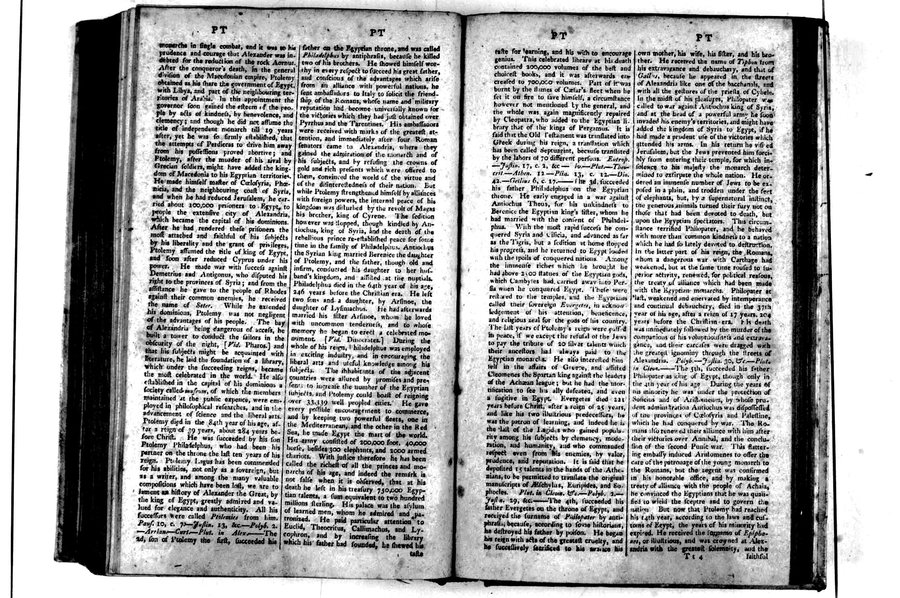 PT
PT
monarchs in ſingle combat, and it was to his
prudence and courage that Alexander was in-
debted for the reduction of the rock Aornus.
After the conqueror's death, in the general
diviſion of the Macedonian empire, Ptolemy
obtained as his ſhare the government of Egypt,
with Libya, and part of the neighbouring ter-
ritories of Arabia. In this appointment the
governor ſoon gained the eſteem of the peo-
ple by acts of kindneſs, by benevolence, and
clemency; and though he did not aſſume the
title of independent monarch till 19 years
after, yet he was ſo firmly eſtabliſhed, that
the attempts of Perdiccas to drive him away
from his poſſeſſions proved abortive; and
Ptolemy, after the murder of his rival by
Grecian ſoldiers, might have added the king-
dom of Macedonia to his Egyptian territories.
He made himſelf maſter of Cœloſyria, Phœ-
nicia, and the neighbouring coaſt of Syria,
and when he had reduced Jeruſalem, he car-
ried about 100,000 priſoners to Egypt, to
people the extenſive city of Alexandria,
which became the capital of his dominions.
After he had rendered theſe priſoners the
moſt attached and faithful of his ſubjects
by his liberality and the grant of privileges,
Ptolemy aſſumed the title of king of Egypt,
and ſoon after reduced Cyprus under his
power. He made war with ſucceſs againſt
Demetrius and Antigonus, who diſputed his
right to the provinces of Syria; and from the
aſſiſtance he gave to the people of Rhodes
againſt their common enemies, he received
the name of Soter. While he extended
his dominions, Ptolemy was not negligent
of the advantages of his people. The bay
of Alexandria being dangerous of acceſs, he
built a tower to conduct the ſailors in the
obſcurity of the night, [Vid. Pharos] and
that his ſubjects might be acquainted with
literature, he laid the foundation of a library,
which under the ſucceeding reigns, became
the moſt celebrated in the world. He alſo
eſtabliſhed in the capital of his dominions a
ſociety called muſeum, of which the members
maintained at the public expence, were em-
ployed in philoſophical reſearches, and in the
advancement of ſcience and the liberal arts.
Ptolemy died in the 84th year of his age, af-
ter a reign of 39 years, about 284 years be-
fore Chriſt. He was ſucceeded by his ſon
Ptolemy Philadelphus, who had been his
partner on the throne the laſt ten years of his
reign. Ptolemy Lagus has been commended
for his abilities, not only as a ſovereign, but
as a writer, and among the many valuable
compoſitions which have been loſt, we are to
lament an hiſtory of Alexander the Great, by
the king of Egypt, greatly admired and va-
lued for elegance and authenticity. All his
ſucceſſors were called Ptolemies from him.
Pauſ. 10, c. 7.—Juſtin. 13, &c.—Polyb. 2.
—Arrian.—Curt.—Plut. in Alex.—The
2d, ſon of Ptolemy the firſt, ſucceeded his
father on the Egyptian throne, and was called
Philadelphus by antiphraſis, becauſe he killed
two of his brothers. He ſhowed himſelf wor-
thy in every reſpect to ſucceed his great father,
and conſcious of the advantages which ariſe
from an alliance with powerful nations, he
ſent ambaſſadors to Italy to ſolicit the friend-
ſhip of the Romans, whoſe name and military
reputation had become univerſally known for
the victories which they had juſt obtained over
Pyrrhus and the Tarentines. His ambaſſadors
were received with marks of the greateſt at-
tention, and immediately after four Roman
ſenators came to Alexandria, where they
gained the admiration of the monarch and of
his ſubjects, and by refuſing the crowns of
gold and rich preſents which were offered to
them, convinced the world of the virtue and
of the diſintereſtedneſs of their nation. But
while Ptolemy ſtrengthened himſelf by alliances
with foreign powers, the internal peace of his
kingdom was diſturbed by the revolt of Magas
his brother, king of Cyrene. The ſedition
however was ſtopped, though kindled by An-
tiochus, king of Syria, and the death of the
rebellious prince re-eſtabliſhed peace for ſome
time in the family of Philadelphus. Antiochus
the Syrian king married Berenice the daughter
of Ptolemy, and the father, though old and
infirm, conducted his daughter to her huſ-
band's kingdom, and aſſiſted at the nuptials.
Philadelphus died in the 64th year of his age,
246 years before the Chriſtian era. He left
two ſons and a daughter, by Arſinoe, the
daughter of Lyſimachus. He had afterwards
married his ſiſter Arſinoe, whom he loved
with uncommon tenderneſs, and to whoſe
memory he began to erect a celebrated mo-
nument. [Vid. Dinocrates.] During the
whole of his reign, Philadelphus was employed
in exciting induſtry, and in encouraging the
liberal arts and uſeful knowledge among his
ſubjects. The inhabitants of the adjacent
countries were allured by promiſes and pre-
ſents to increaſe the number of the Egyptian
ſubjects, and Ptolemy could boaſt of reigning
over 33,339 well peopled cities. He gave
every poſſible encouragement to commerce,
and by keeping two powerful fleets, one in
the Mediterranean, and the other in the Red
Sea, he made Egypt the mart of the world.
His army conſiſted of 200,000 foot, 40,000
horſe, beſides 300 elephants, and 2000 armed
chariots. With juſtice therefore he has been
called the richeſt of all the princes and mo-
narchs of his age, and indeed the remark is
not falſe when it is obſerved, that at his
death he left in his treaſury 750,000 Egyp-
tian talents, a ſum equivalent to two hundred
millions ſterling. His palace was the aſylum
of learned men, whom he admired and pa-
tronized. He paid particular attention to
Euclid, Theocritus, Callimachus, and Ly-
cophron, and by increaſing the library
which his father had founded, he ſhewed his
taſte
PT
PT
taſte for learning, and his wiſh to encourage
genius. This celebrated library at his death
contained 200,000 volumes of the beſt and
choiceſt books, and it was afterwards en-
creaſed to 700,000 volumes. Part of it was
burnt by the flames of Cæſar's fleet when he
ſet it on fire to ſave himſelf, a circumſtance
however not mentioned by the general, and
the whole was again magnificently repaired
by Cleopatra, who added to the Egyptian li-
brary that of the kings of Pergamus. It is
ſaid that the Old Teſtament was tranſlated into
Greek during his reign, a tranſlation which
has been called ſeptuagint, becauſe tranſlated
by the labors of 70 different perſons. Eutrop.
—Juſtin. 17, c. 2, &c.—Liv.—Plut.—Theo-
crit.—Athen. 12.—Plin. 13, c. 12.—Dio.
42.—Gellius 6, c. 17.—The 3d, ſucceeded
his father Philadelphus on the Egyptian
throne. He early engaged in a war againſt
Antiochus Theos, for his unkindneſs to
Berenice the Egyptian king's ſiſter, whom he
had married with the conſent of Philadel-
phus. With the moſt rapid ſucceſs he con-
quered Syria and Cilicia, and advanced as far
as the Tigris, but a ſedition at home ſtopped
his progreſs, and he returned to Egypt loaded
with the ſpoils of conquered nations. Among
the immenſe riches which he brought he
had above 2500 ſtatues of the Egyptian gods,
which Cambyſes had carried away into Per-
ſia when he conquered Egypt. Theſe were
reſtored to the temples, and the Egyptians
called their ſovereign Evergetes, in acknow-
ledgement of his attention, beneficence,
and religious zeal for the gods of his country.
The laſt years of Ptolemy's reign were paſſed
in peace, if we except the refuſal of the Jews
to pay the tribute of 20 ſilver talents which
their anceſtors had always paid to the
Egyptian monarchs. He alſo intereſted him-
ſelf in the affairs of Greece, and aſſiſted
Cleomenes the Spartan king againſt the leaders
of the Achæan league; but he had the mor-
tification to ſee his ally defeated, and even
a fugitive in Egypt. Evergetes died 221
years before Chriſt, after a reign of 25 years,
and like his two illuſtrious predeceſſors, he
was the patron of learning, and indeed he is
the laſt of the Lagides who gained popula-
rity among his ſubjects by clemency, mode-
ration, and humanity, and who commanded
reſpect even from his enemies, by valor,
prudence, and reputation. It is ſaid that he
depoſited 15 talents in the hands of the Athe-
nians, to be permitted to tranſlate the original
manuſcripts of Æſchylus, Euripides, and So-
phocles. Plut. in Cleom. &c.—Polyb. 2.—
Juſtin. 29, &c.—The 4th, ſucceeded his
father Evergetes on the throne of Egypt, and
received the ſurname of Philopater by anti-
phraſis, becauſe, according to ſome hiſtorians,
he deſtroyed his father by poiſon. He began
his reign with acts of the greateſt cruelty, and
he ſucceſſively ſacrificed to his avarice his
own mother, his wife, his ſiſter, and his bro-
ther. He received the name of Tiphon from
his extravagance and debauchery, and that of
Gallus, becauſe he appeared in the ſtreets
of Alexandria like one of the bacchanals, and
with all the geſtures of the prieſts of Cybele.
In the midſt of his pleaſures, Philopater was
called to war againſt Antiochus king of Syria,
and at the head of a powerful army he ſoon
invaded his enemy's territories, and might have
added the kingdom of Syria to Egypt, if he
had made a prudent uſe of the victories which
attended his arms. In his return he viſited
Jeruſalem, but the Jews prevented him forci-
bly from entering their temple, for which in-
ſolence to his majeſty the monarch deter-
mined to extirpate the whole nation. He or-
dered an immenſe number of Jews to be ex-
poſed in a plain, and trodden under the feet
of elephants, but, by a ſupernatural inſtinct,
the generous animals turned their fury not on
thoſe that had been devoted to death, but
upon the Egyptian ſpectators. This circum-
ſtance terrified Philopater, and he behaved
with more than common kindneſs to a nation
which he had ſo lately devoted to deſtruction.
In the latter part of his reign, the Romans,
whom a dangerous war with Carthage had
weakened, but at the ſame time rouſed to ſu-
perior activity, renewed, for political reaſons,
the treaty of alliance which had been made
with the Egyptian monarchs. Philopater at
laſt, weakened and enervated by intemperance
and continual debauchery, died in the 37th
year of his age, after a reign of 17 years, 204
years before the Chriſtian era. His death
was immediately followed by the murder of the
companions of his voluptuouſneſs and extrava-
gance, and their carcaſes were dragged with
the greateſt ignominy through the ſtreets of
Alexandria. Polyb.—Juſtin. 30, &c.—Plut.
in Cleom.—The 5th, ſucceeded his father
Philopater as king of Egypt, though only in
the 4th year of his age. During the years of
his minority he was under the protection of
Soſibius and of Ariſtomenes, by whoſe pru-
dent adminiſtration Antiochus was diſpoſſeſſed
of the provinces of Cœloſyria and Paleſtine,
which he had conquered by war. The Ro-
mans alſo renewed their alliance with him after
their victories over Annibal, and the conclu-
ſion of the ſecond Punic war. This flatter-
ing embaſſy induced Ariſtomenes to offer the
care of the patronage of the young monarch to
the Romans, but the regent was confirmed
in his honorable office, and by making a
treaty of alliance with the people of Achaia,
he convinced the Egyptians that he was quali-
fied to wield the ſceptre and to govern the
nation. But now that Ptolemy had reached
his 14th year, according to the laws and cuſ-
toms of Egypt, the years of his minority had
expired. He received the ſurname of Epipha-
nes, or illuſtrious, and was crowned at Alex-
andria with the greateſt ſolemnity, and the
T t 4
faithful